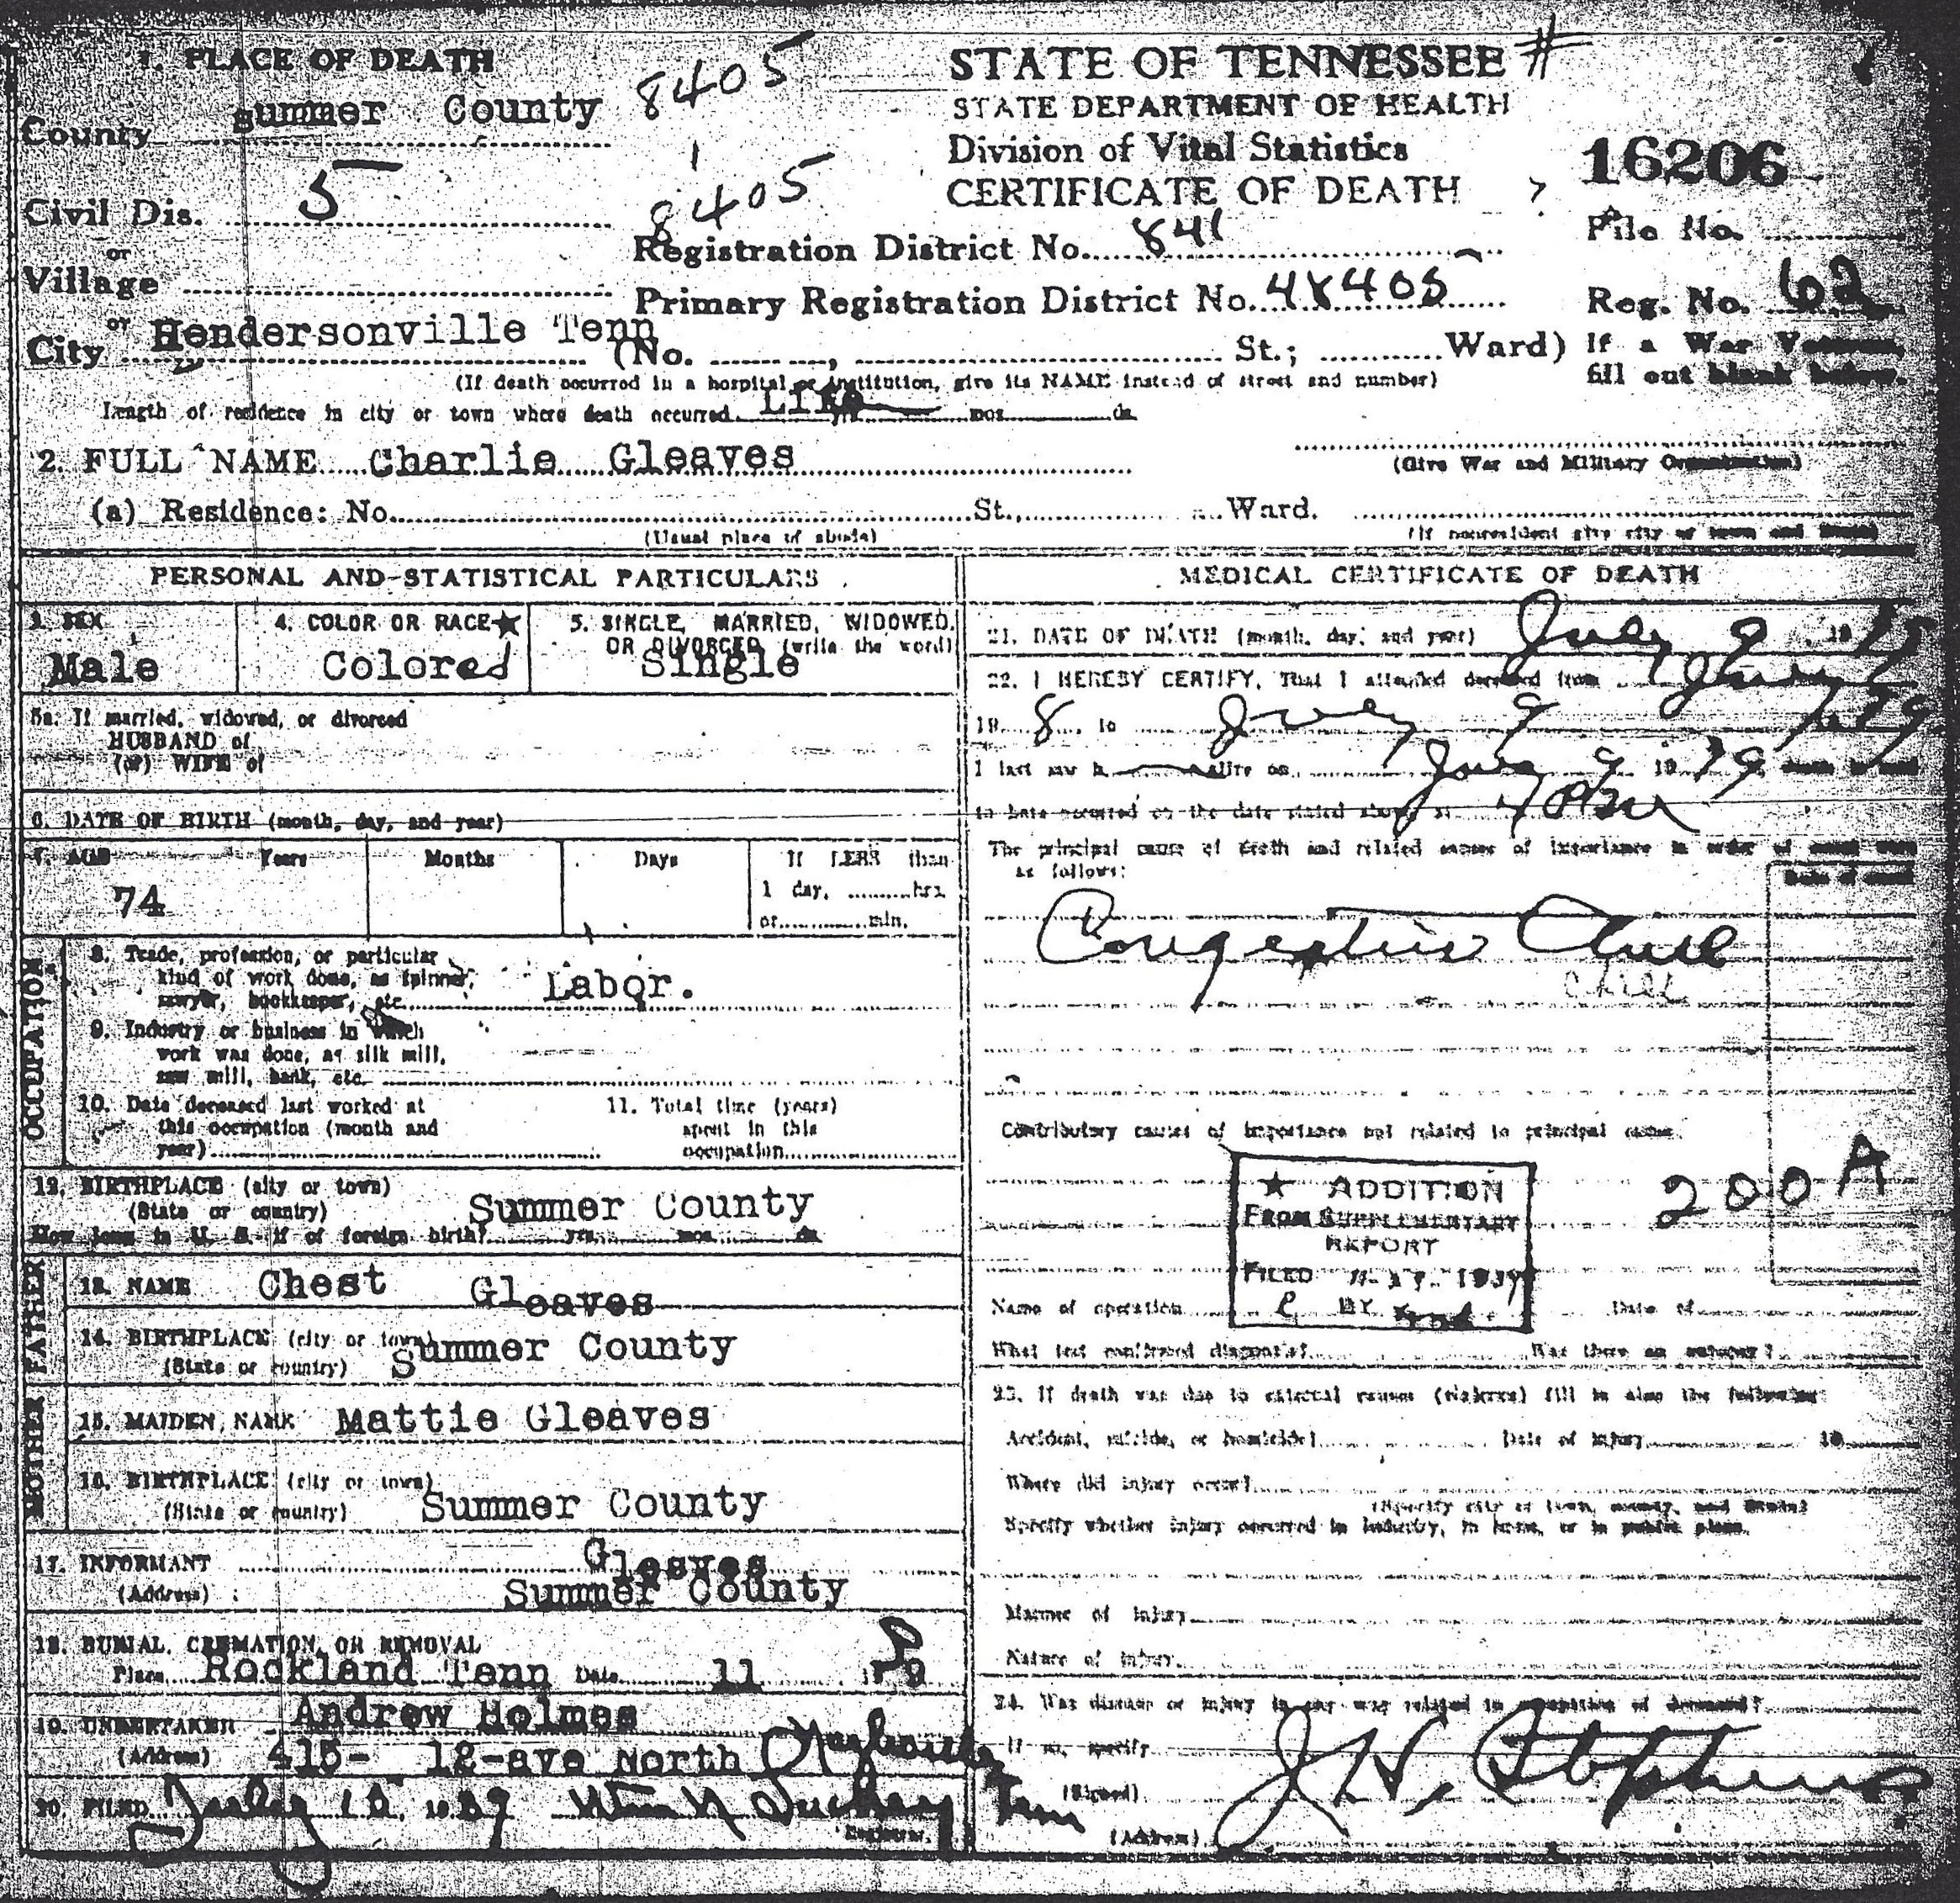 1. PLACE OF DEATH
County Summer County 8405
Civil Dis. 5 8405
or
Village
or
City Hendersonville Tenn (No. , St.; Ward)
STATE OF TENNESSEE #
STATE DEPARTMENT OF HEALTH
Division of Vital Statistics
CERTIFICATE OF DEATH
Registration District No. 841
Primary Registration District No. 48405
16206
File No.
Reg. No. 62
If a War
fill out blank below.
(If death occurred in a hospital or institution, give its NAME instead of street and number)
Length of residence in city or town where death occurred Life yrs. mos. ds.
2. FULL NAME Charlie Gleaves
(Give War and Military Organization)
(a) Residence: No. St., Ward.
(Usual place of abode) (If nonresident give city or town and
PERSONAL AND STATISTICAL PARTICULARS
3. SEX
Male
4. COLOR OR RACE ★
Colored
5. SINGLE, MARRIED, WIDOWED,
OR DIVORCED (write the word)
Single
5a. If married, widowed, or divorced
HUSBAND of
(or) WIFE of
6. DATE OF BIRTH (month, day, and year)
7. AGE Years Months Days If LESS than
1 day, hrs.
or min.
74
OCCUPATION
8. Trade, profession, or particular
kind of work done, as spinner,
sawyer, bookkeeper, etc. Labor.
9. Industry or business in which
work was done, as silk mill,
saw mill, bank, etc.
10. Date deceased last worked at
this occupation (month and
year)
11. Total time (years)
spent in this
occupation
12. BIRTHPLACE (city or town)
(State or country) Summer County
How long in U. S. if of foreign birth? yrs. mos. ds.
FATHER
13. NAME Chest Gleaves
14. BIRTHPLACE (city or town)
(State or country) Summer County
MOTHER
15. MAIDEN NAME Mattie Gleaves
16. BIRTHPLACE (city or town)
(State or country) Summer County
17. INFORMANT Gleaves
(Address) Summer County
18. BURIAL, CREMATION, OR REMOVAL
Place Rockland Tenn Date 11
19. UNDERTAKER Andrew Holmes
(Address) 415- 12-ave North Nashville Tenn
20. FILED July 10, 1939
Registrar.
MEDICAL CERTIFICATE OF DEATH
21. DATE OF DEATH (month, day, and year) July 9
22. I HEREBY CERTIFY, That I attended deceased from
19 8, to July 9
I last saw h alive on July 9 19 39
to have occurred on the date stated above, at
The principal cause of death and related causes of importance in order of
as follows:
Congestive Chill
chill
Contributory causes of importance not related to principal cause:
200 A
★ ADDITION
FROM SUPPLEMENTARY
REPORT
FILED
BY
Name of operation Date of
What test confirmed diagnosis? Was there an autopsy?
23. If death was due to external causes (violence) fill in also the following:
Accident, suicide, or homicide? Date of injury 19
Where did injury occur?
(Specify city or town, county, and State)
Specify whether injury occurred in industry, in home, or in public place.
Manner of injury
Nature of injury
24. Was disease or injury in any way related to occupation of deceased?
If so, specify
(Signed) J H Stephens
(Address)